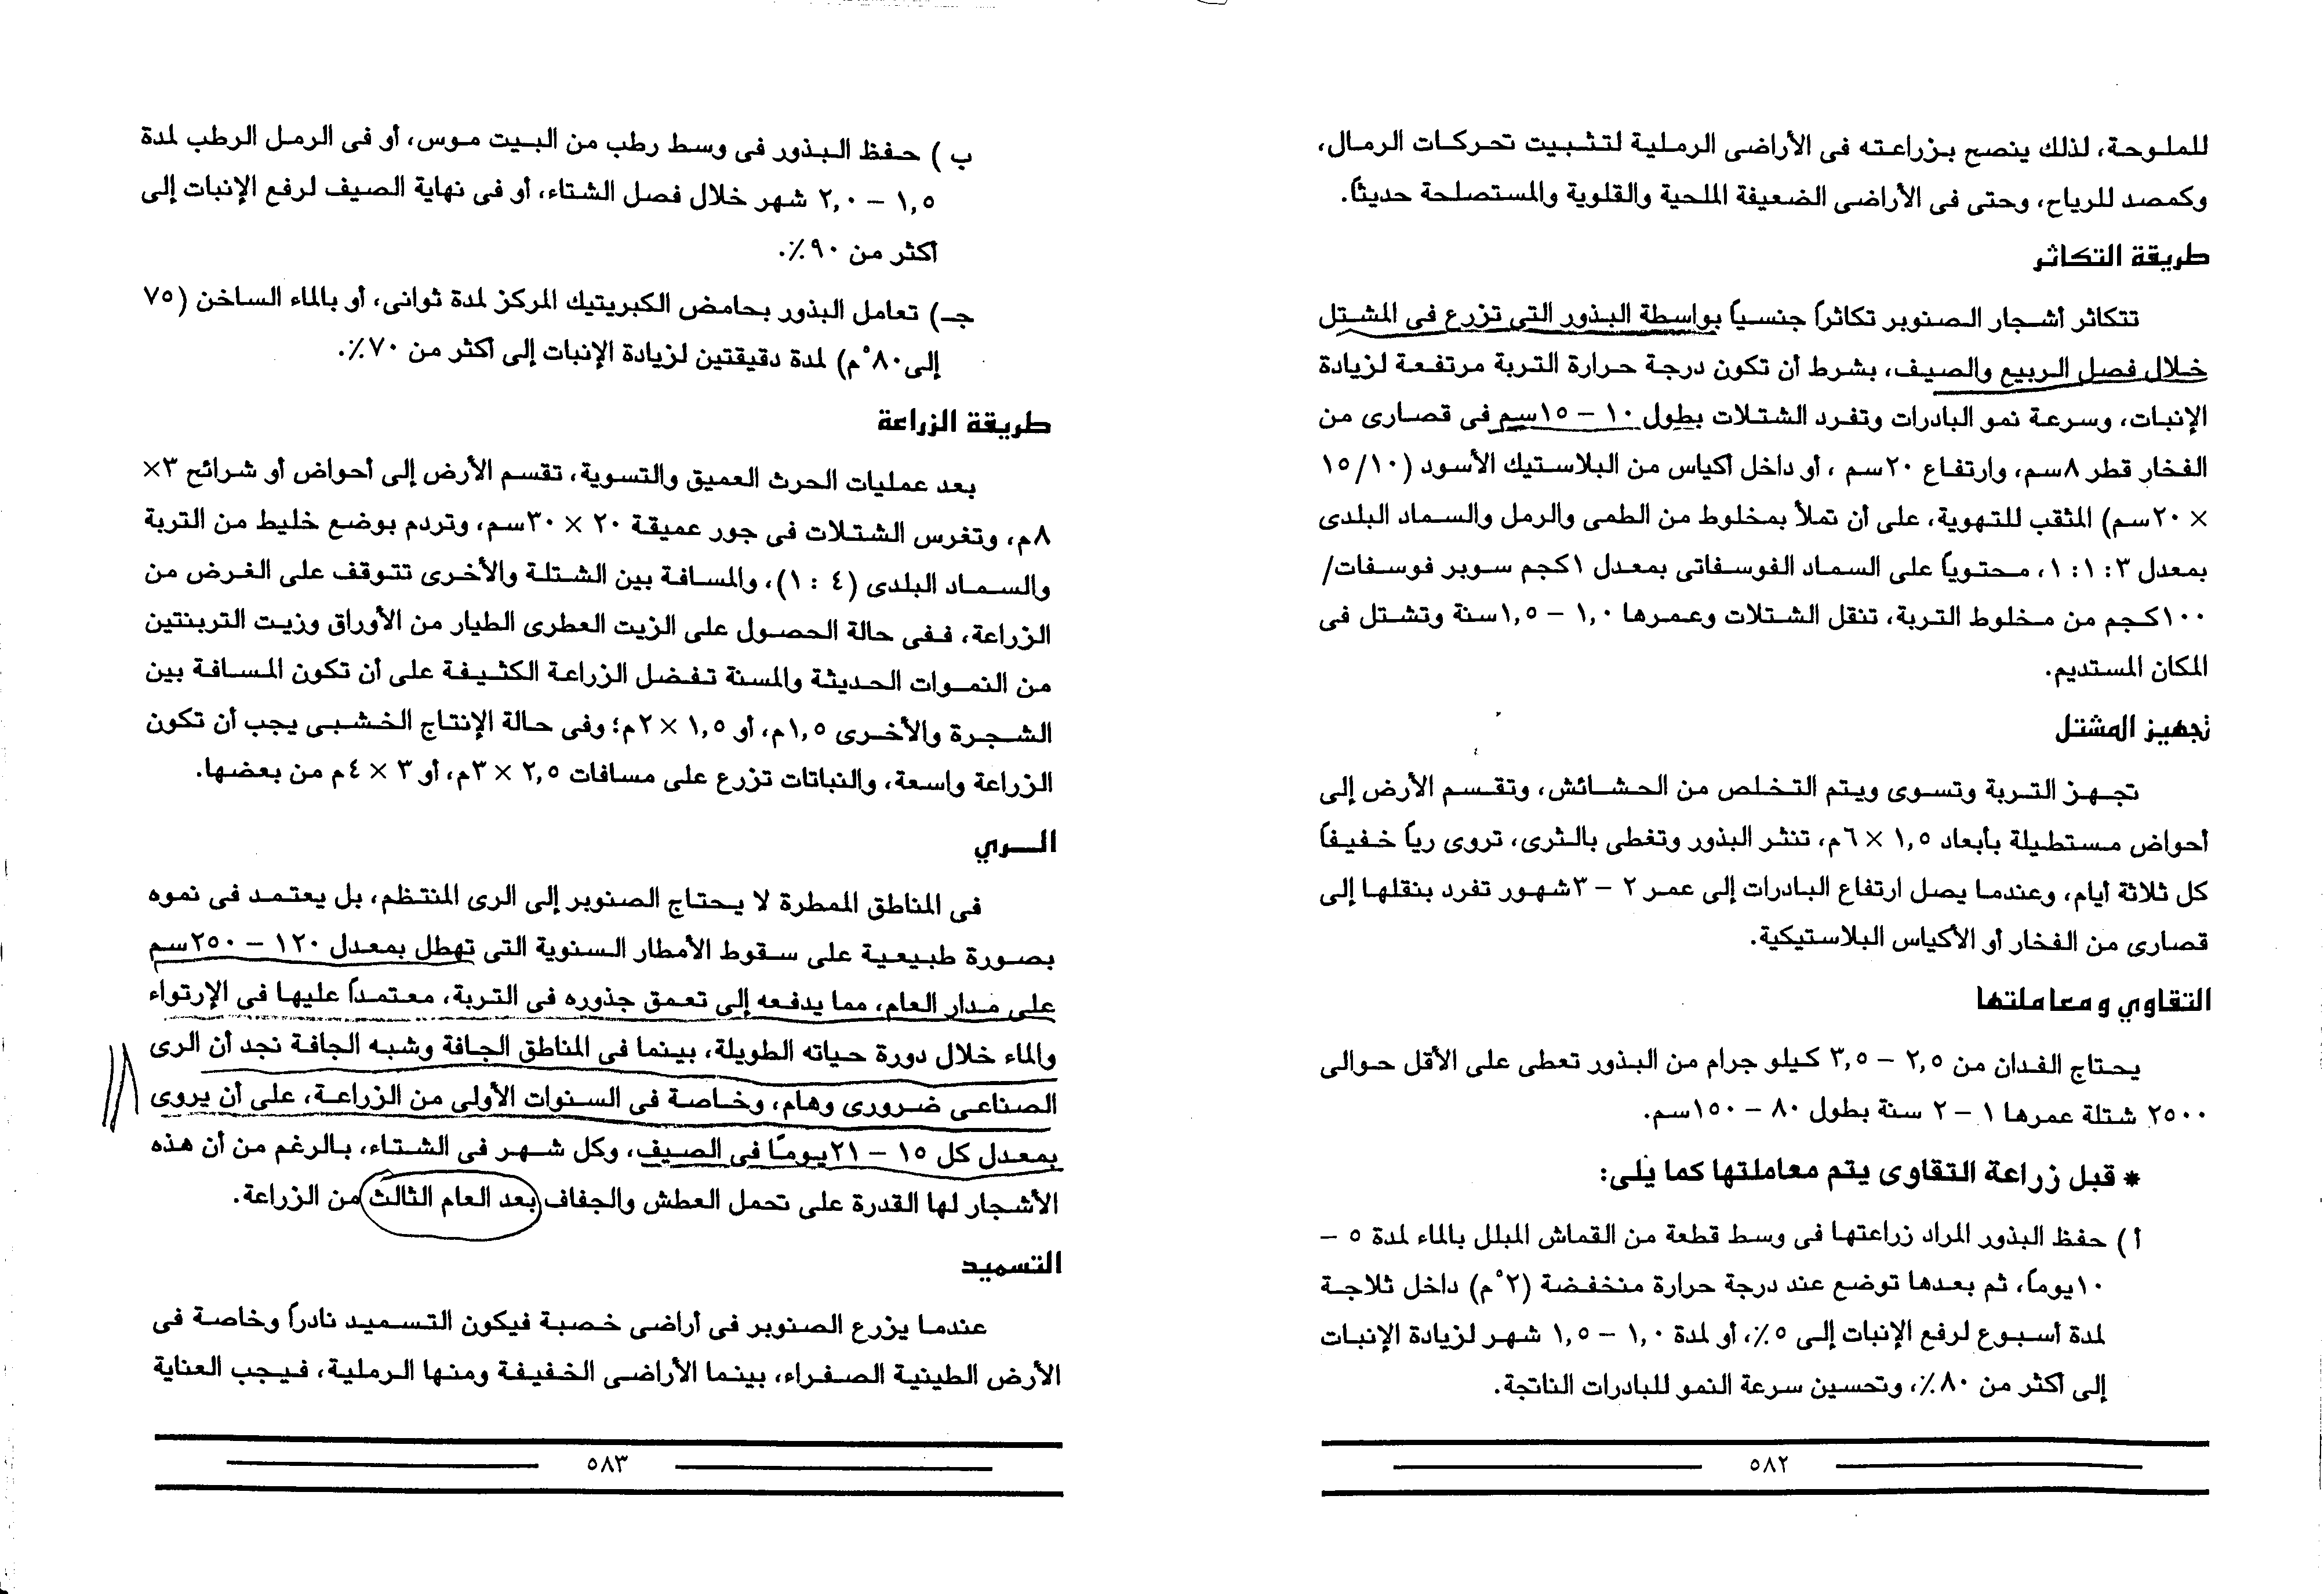 للملوحة، لذلك ينصح بزراعته فى الأراضى الرملية لتثبيت تحركات الرمال،
وكمصد للرياح، وحتى فى الأراضى الضعيفة الملحية والقلوية والمستصلحة حديثاً.
طريقة التكاثر
تتكاثر أشجار الصنوبر تكاثراً جنسياً بواسطة البذور التى تزرع فى المشتل
خلال فصل الربيع والصيف، بشرط أن تكون درجة حرارة التربة مرتفعة لزيادة
الإنبات، وسرعة نمو البادرات وتفرد الشتلات بطول ١٠ – ١٥سم فى قصارى من
الفخار قطر ٨سم، وارتفاع ٢٠سم ، أو داخل أكياس من البلاستيك الأسود (١٥/١٠
× ٢٠سم) المثقب للتهوية، على أن تملأ بمخلوط من الطمى والرمل والسماد البلدى
بمعدل ٣: ١: ١، محتوياً على السماد الفوسفاتى بمعدل ١كجم سوبر فوسفات/
١٠٠كجم من مخلوط التربة، تنقل الشتلات وعمرها ١,٠ – ١,٥سنة وتشتل فى
المكان المستديم.
تجهيز المشتل
تجهز التربة وتسوى ويتم التخلص من الحشائش، وتقسم الأرض إلى
أحواض مستطيلة بأبعاد ١,٥ × ٦م، تنثر البذور وتغطى بالثرى، تروى رياً خفيفاً
كل ثلاثة أيام، وعندما يصل ارتفاع البادرات إلى عمر ٢ – ٣شهور تفرد بنقلها إلى
قصارى من الفخار أو الأكياس البلاستيكية.
التقاوي ومعاملتها
يحتاج الفدان من ٢,٥ – ٣,٥ كيلو جرام من البذور تعطى على الأقل حوالى
٢٥٠٠ شتلة عمرها ١ – ٢ سنة بطول ٨٠ – ١٥٠سم.
* قبل زراعة التقاوى يتم معاملتها كما يلى:
أ ) حفظ البذور المراد زراعتها فى وسط قطعة من القماش المبلل بالماء لمدة ٥ –
١٠يوماً، ثم بعدها توضع عند درجة حرارة منخفضة (٢°م) داخل ثلاجة
لمدة أسبوع لرفع الإنبات إلى ٥٪، أو لمدة ١,٠ – ١,٥ شهر لزيادة الإنبات
إلى أكثر من ٨٠٪، وتحسين سرعة النمو للبادرات الناتجة.
٥٨٢
ب ) حفظ البذور فى وسط رطب من البيت موس، أو فى الرمل الرطب لمدة
١,٥ – ٢,٠ شهر خلال فصل الشتاء، أو فى نهاية الصيف لرفع الإنبات إلى
أكثر من ٩٠٪.
جـ) تعامل البذور بحامض الكبريتيك المركز لمدة ثوانى، أو بالماء الساخن (٧٥
إلى ٨٠°م) لمدة دقيقتين لزيادة الإنبات إلى أكثر من ٧٠٪.
طريقة الزراعة
بعد عمليات الحرث العميق والتسوية، تقسم الأرض إلى أحواض أو شرائح ٣×
٨م، وتغرس الشتلات فى جور عميقة ٢٠ × ٣٠سم، وتردم بوضع خليط من التربة
والسماد البلدى (٤ : ١)، والمسافة بين الشتلة والأخرى تتوقف على الغرض من
الزراعة، ففى حالة الحصول على الزيت العطرى الطيار من الأوراق وزيت التربنتين
من النموات الحديثة والمسنة تفضل الزراعة الكثيفة على أن تكون المسافة بين
الشجرة والأخرى ١,٥م، أو ١,٥ × ٢م؛ وفى حالة الإنتاج الخشبى يجب أن تكون
الزراعة واسعة، والنباتات تزرع على مسافات ٢,٥ × ٣م، أو ٣ × ٤م من بعضها.
الــري
فى المناطق الممطرة لا يحتاج الصنوبر إلى الرى المنتظم، بل يعتمد فى نموه
بصورة طبيعية على سقوط الأمطار السنوية التى تهطل بمعدل ١٢٠ – ٢٥٠سم
على مدار العام، مما يدفعه إلى تعمق جذوره فى التربة، معتمداً عليها فى الإرتواء
والماء خلال دورة حياته الطويلة، بينما فى المناطق الجافة وشبه الجافة نجد أن الرى
الصناعى ضرورى وهام، وخاصة فى السنوات الأولى من الزراعة، على أن يروى
بمعدل كل ١٥ – ٢١يوماً فى الصيف، وكل شهر فى الشتاء، بالرغم من أن هذه
الأشجار لها القدرة على تحمل العطش والجفاف بعد العام الثالث من الزراعة.
التسميد
عندما يزرع الصنوبر فى أراضى خصبة فيكون التسميد نادراً وخاصة فى
الأرض الطينية الصفراء، بينما الأراضى الخفيفة ومنها الرملية، فيجب العناية
٥٨٣